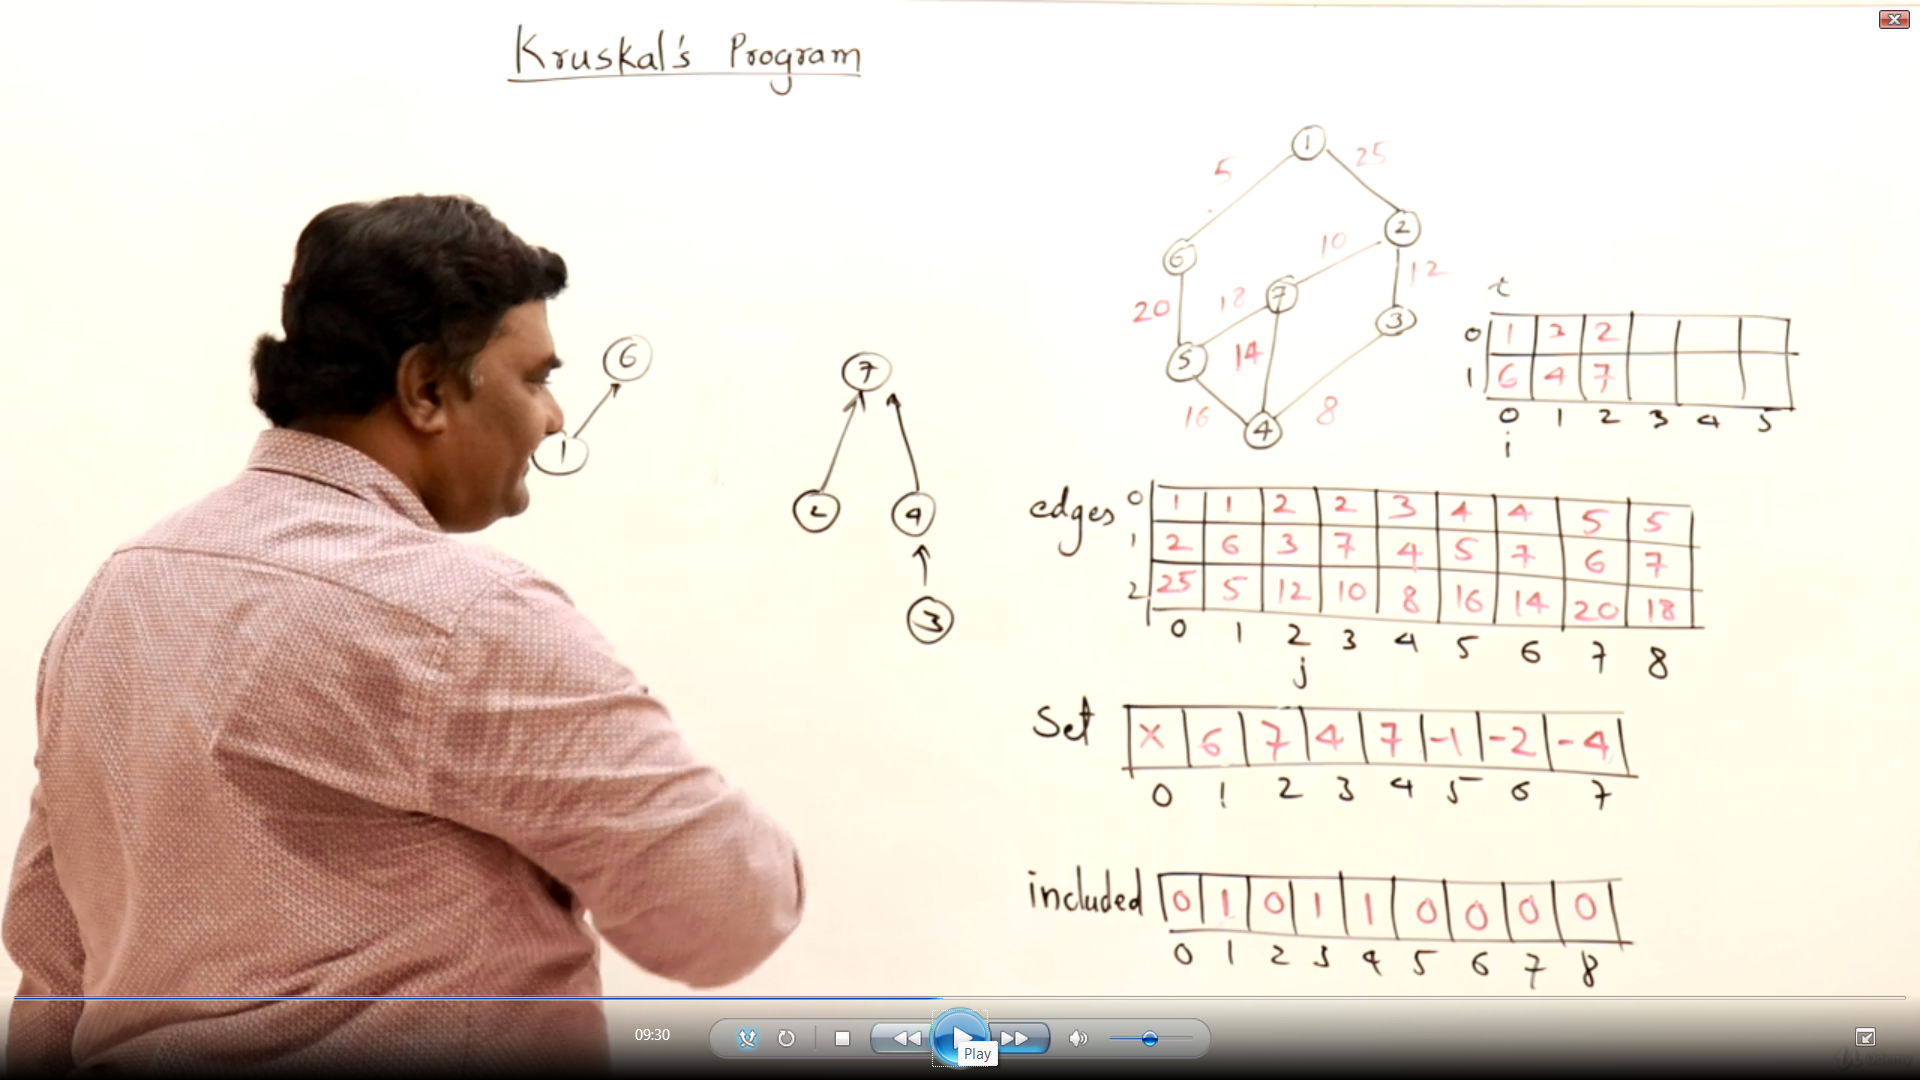 Kruskal's Program
1
5
25
2
6
10
12
20
18
7
3
5
14
16
8
4
6
1
7
2
4
3
t
0 1 3 2
1 6 4 7
0 1 2 3 4 5
i
edges
0 1 1 2 2 3 4 4 5 5
1 2 6 3 7 4 5 7 6 7
2 25 5 12 10 8 16 14 20 18
0 1 2 3 4 5 6 7 8
j
Set X 6 7 4 7 -1 -2 -4
0 1 2 3 4 5 6 7
included 0 1 0 1 1 0 0 0 0
0 1 2 3 4 5 6 7 8
09:30
Play